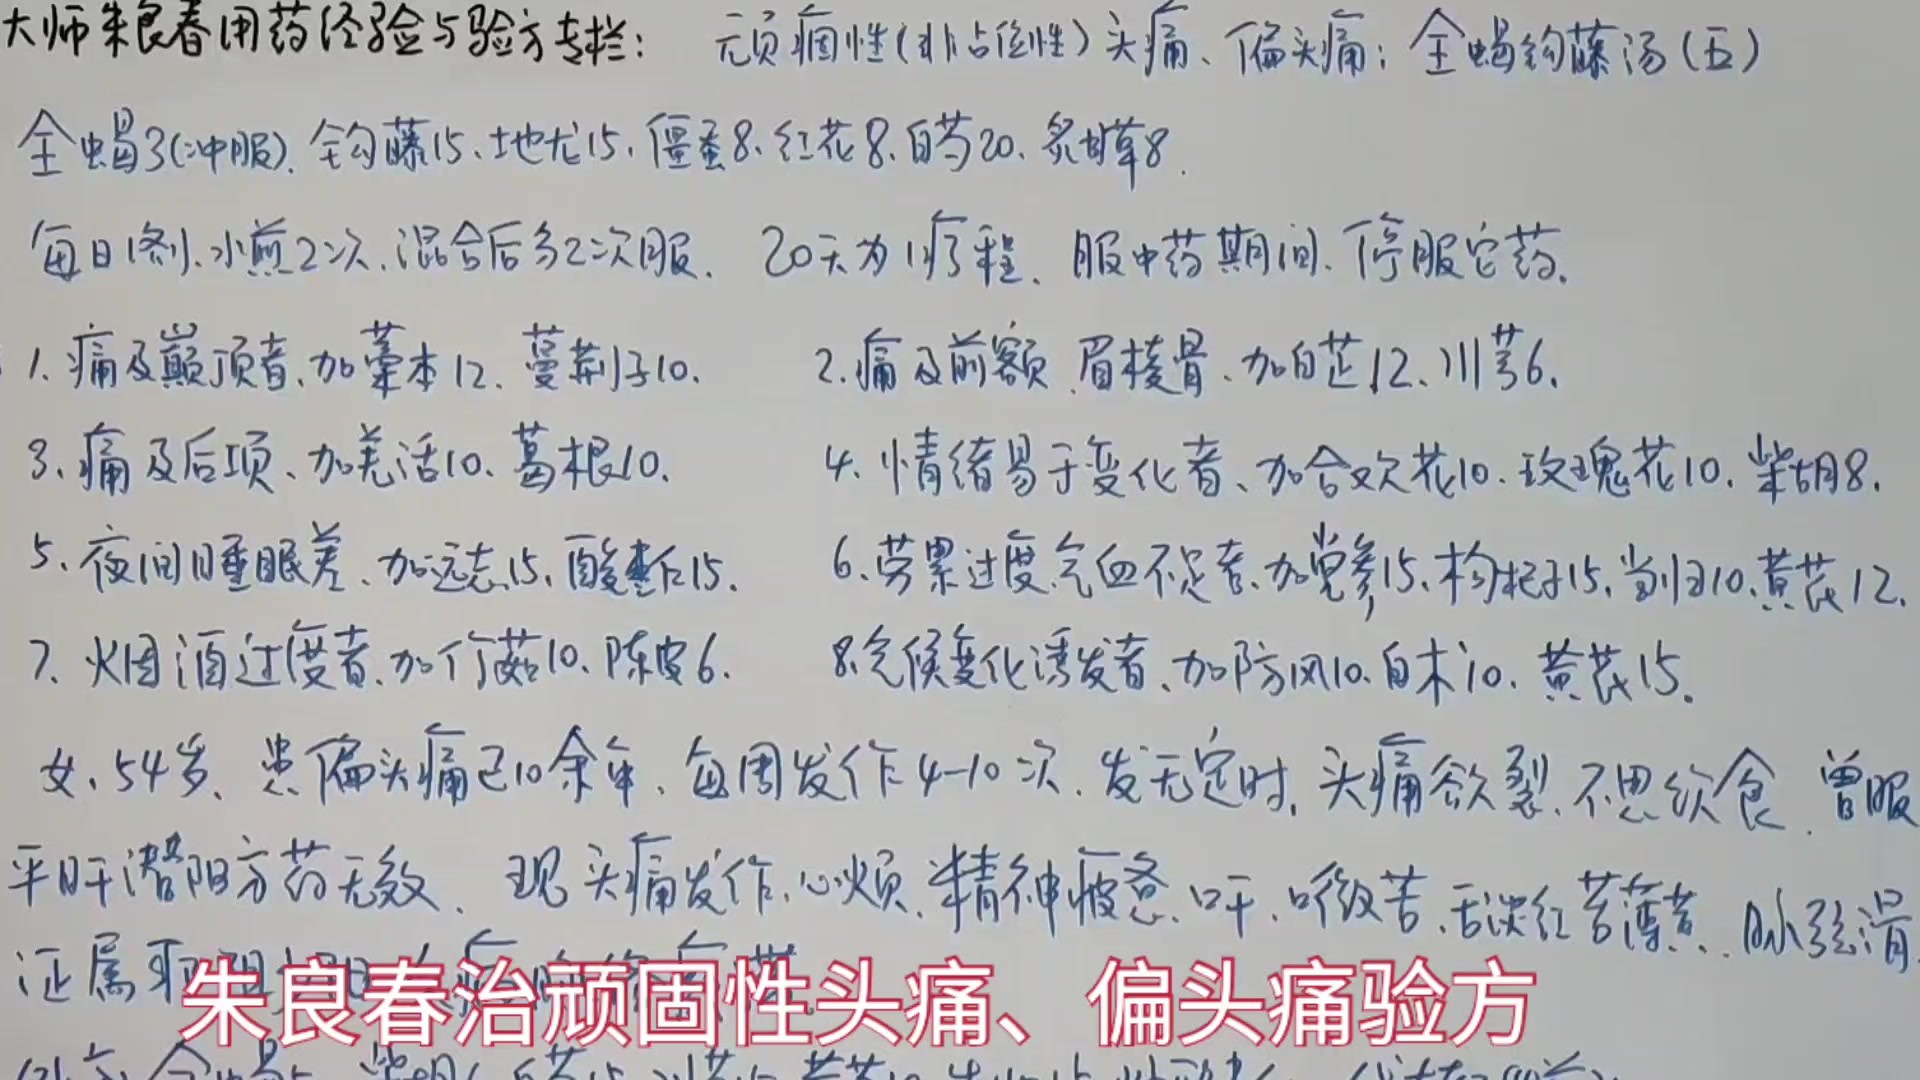 大师朱良春用药经验与验方专栏： 顽痼性(非占位性)头痛、偏头痛：全蝎钩藤汤(五)
全蝎3(冲服)、钩藤15、地龙15、僵蚕8、红花8、白芍20、炙甘草8.
每日1剂、水煎2次、混合后分2次服、 20天为1疗程、 服中药期间、停服它药.
1、痛及巅顶者、加藁本12、蔓荆子10. 2、痛及前额、眉棱骨、加白芷12、川芎6.
3、痛及后项、加羌活10、葛根10. 4、情绪易于变化者、加合欢花10、玫瑰花10、柴胡8.
5、夜间睡眠差、加远志15、酸枣仁15. 6、劳累过度气血不足者、加党参15、枸杞子15、当归10、黄芪12.
7、烟酒过度者、加竹茹10、陈皮6. 8、气候变化诱发者、加防风10、白术10、黄芪15.
女、54岁、患偏头痛已10余年、每周发作4-10次、发无定时、头痛欲裂、不思饮食、曾服
平肝潜阳方药无效、 现头痛发作、心烦、精神疲惫、口干、口微苦、舌淡红苔薄黄、脉弦滑
证属
朱良春治顽固性头痛、偏头痛验方